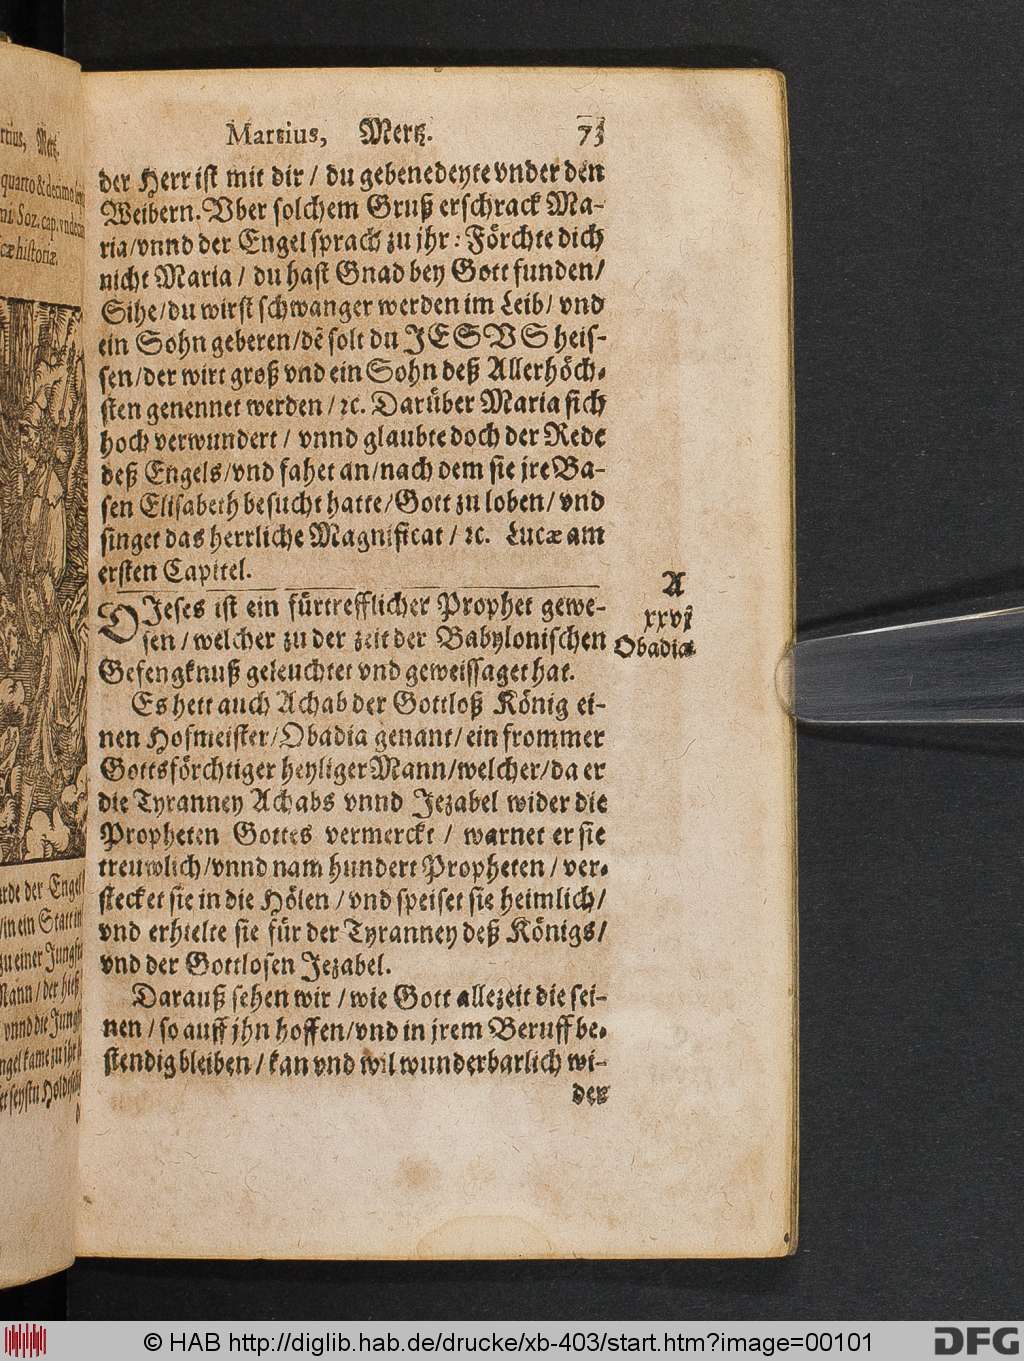 Martius, Mertz. 73
der Herr ist mit dir / du gebenedeyte vnder den
Weibern. Vber solchem Gruß erschrack Ma-
ria/vnnd der Engel sprach zu jhr: Förchte dich
nicht Maria / du hast Gnad bey Gott funden/
Sihe/du wirst schwanger werden im Leib/ vnd
ein Sohn geberen/dē solt du JESVS heis-
sen/der wirt groß vnd ein Sohn deß Allerhöch-
sten genennet werden / ꝛc. Darüber Maria sich
hoch verwundert / vnnd glaubte doch der Rede
deß Engels/vnd fahet an/nach dem sie jre Ba-
sen Elisabeth besucht hatte/Gott zu loben/ vnd
singet das herrliche Magnificat / ꝛc. Lucæ am
ersten Capitel.
A
xxvj
Obadia
DJeses ist ein fürtrefflicher Prophet gewe-
sen / welcher zu der zeit der Babylonischen
Gefengknuß geleuchtet vnd geweissaget hat.
Es hett auch Achab der Gottloß König ei-
nen Hofmeister/Obadia genant/ein frommer
Gottsförchtiger heyliger Mann/welcher/da er
die Tyranney Achabs vnnd Jezabel wider die
Propheten Gottes vermerckt / warnet er sie
treuwlich/vnnd nam hundert Propheten / ver-
stecket sie in die Hölen / vnd speiset sie heimlich/
vnd erhielte sie für der Tyranney deß Königs/
vnd der Gottlosen Jezabel.
Darauß sehen wir / wie Gott allezeit die sei-
nen / so auff jhn hoffen/vnd in jrem Beruff be-
stendig bleiben / kan vnd wil wunderbarlich wi-
der
© HAB http://diglib.hab.de/drucke/xb-403/start.htm?image=00101
DFG